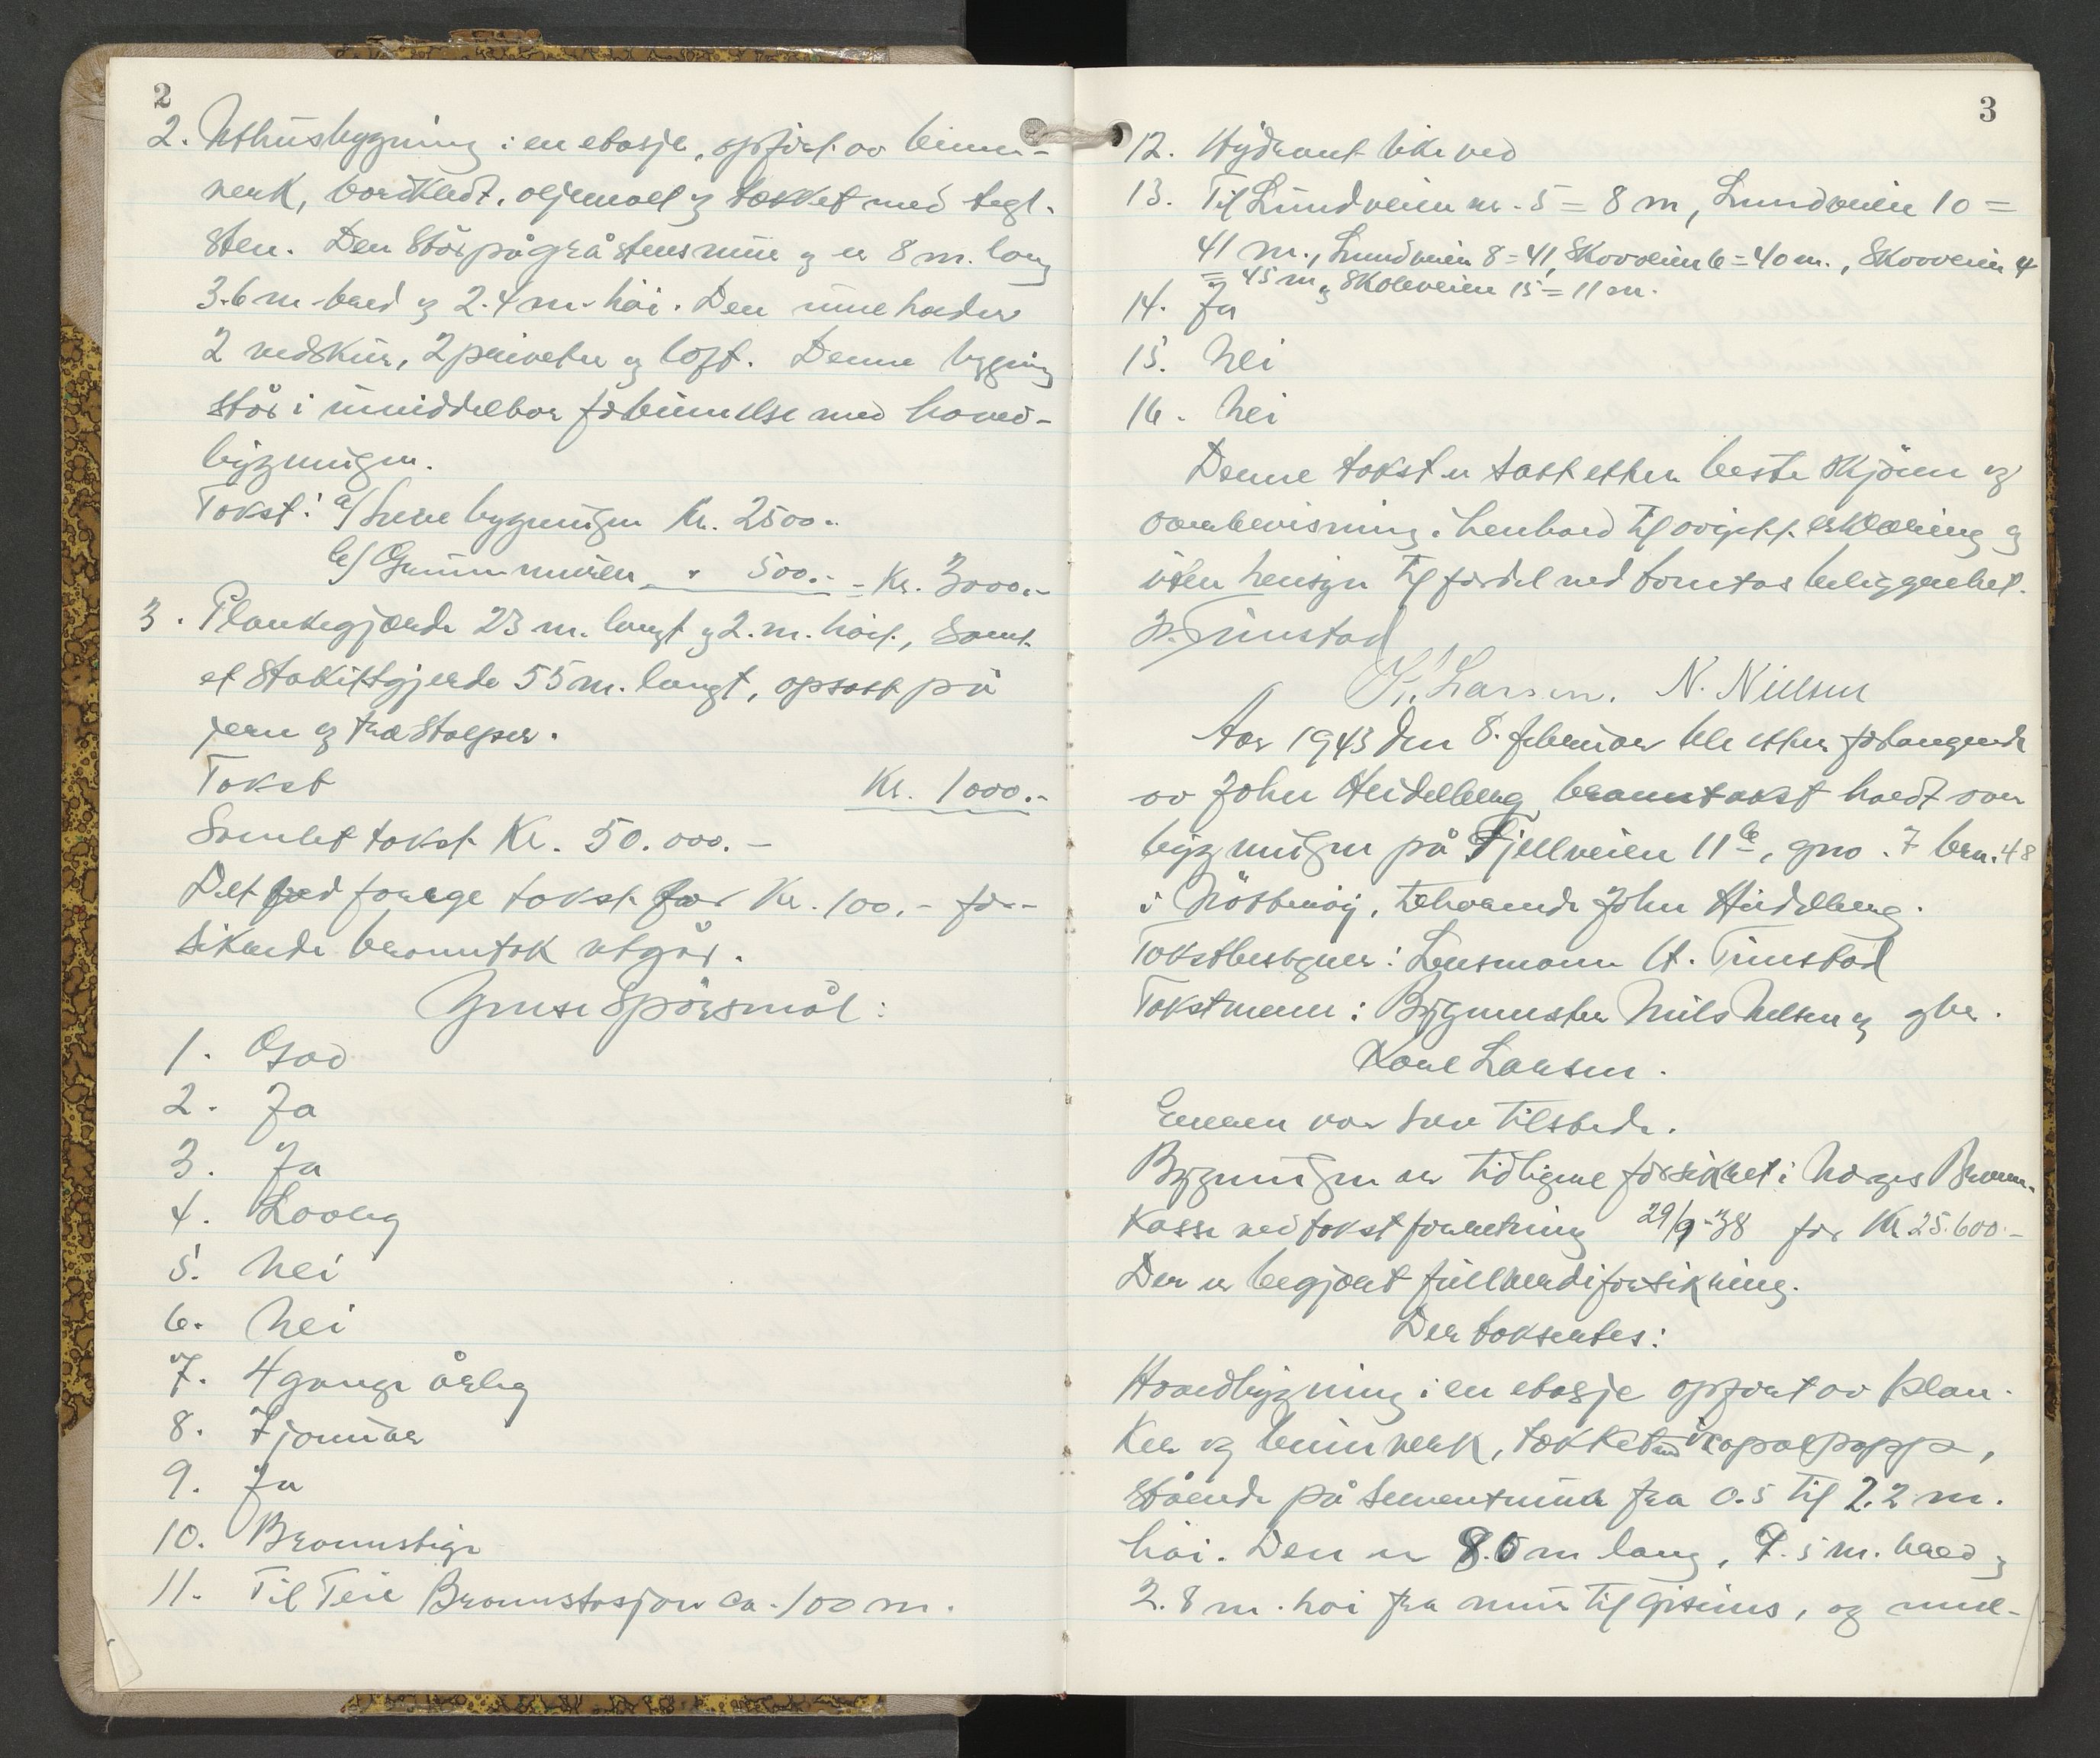 2
2. Uthusbygning i en etasje, opført av binnings-
verk, bordkledt, oljemalt og tekket med tegl-
sten. Den står på gråstensmur og er 8 m. lang
3.6 m bred og 2.4 m. høi. Den inneholder
2 vedskur, 2 priveter og loft. Denne bygning
står i umiddelbar forbinnelse med hoved-
bygningen.
Takst: a/ Selve bygningen Kr. 2500.-
b/ Grunnmuren " 500.- = Kr. 3000.-
3. Plankegjærde 23 m. langt og 2. m. høit, samt
et Stakittgjerde 55 m. langt, opsatt på
jern og træ stolper.
Takst Kr. 1000.-
Samlet takst Kr. 50.000.-
Det ved forrige takst for Kr. 100.- for-
sikrede branntak utgår.
Grense Spørsmål:
1. God
2. Ja
3. Ja
4. Lovlig
5. Nei
6. Nei
7. 4 gange årlig
8. 7 januar
9. Ja
10. Brannstige
11. Til Teie Brannstasjon ca. 100 m.
3
12. Hydrant like ved
13. Til Lundveien nr. 5 = 8 m, Lundveien 10 =
41 m., Lundveien 8 = 41, Skovveien 6 = 40 m., Skovveien 4
= 45 m og Skoleveien 15 = 11 m.
14. Ja
15. Nei
16. Nei
Denne takst er tatt etter beste skjønn og
overbevisning i henhold til avgitt erklæring og
uten hensyn til fordel ved tomtas beliggenhet.
H. Timstad
K. Larsen. N. Nielsen
Aar 1943 den 8. februar ble etter forlangende
av John Heidelberg branntakst holdt over
bygningen på Fjellveien 11b, gno. 7 brn. 48
i Nøtterøy, tilhørende John Heidelberg.
Takstbestyrer: Lensmann H. Timstad
Takstmenn: Bygmester Nils Nielsen og gbr.
Karl Larsen.
Eieren var selv tilstede.
Bygningen er tidligere forsikret i Norges Brann-
kasse ved takst forretning 29/9-38 for Kr 25.600.-
Der er begjært fullverdiforsikring.
Der takseres:
Hovedbygning i en etasje opført av plan-
ker og binnverk, tekket med icopalpapp,
stående på sementmur fra 0.5 til 2.2 m.
høi. Den er 8.0 m lang, 7.5 m. bred og
2.8 m. høi fra mur til gesims, og inne-